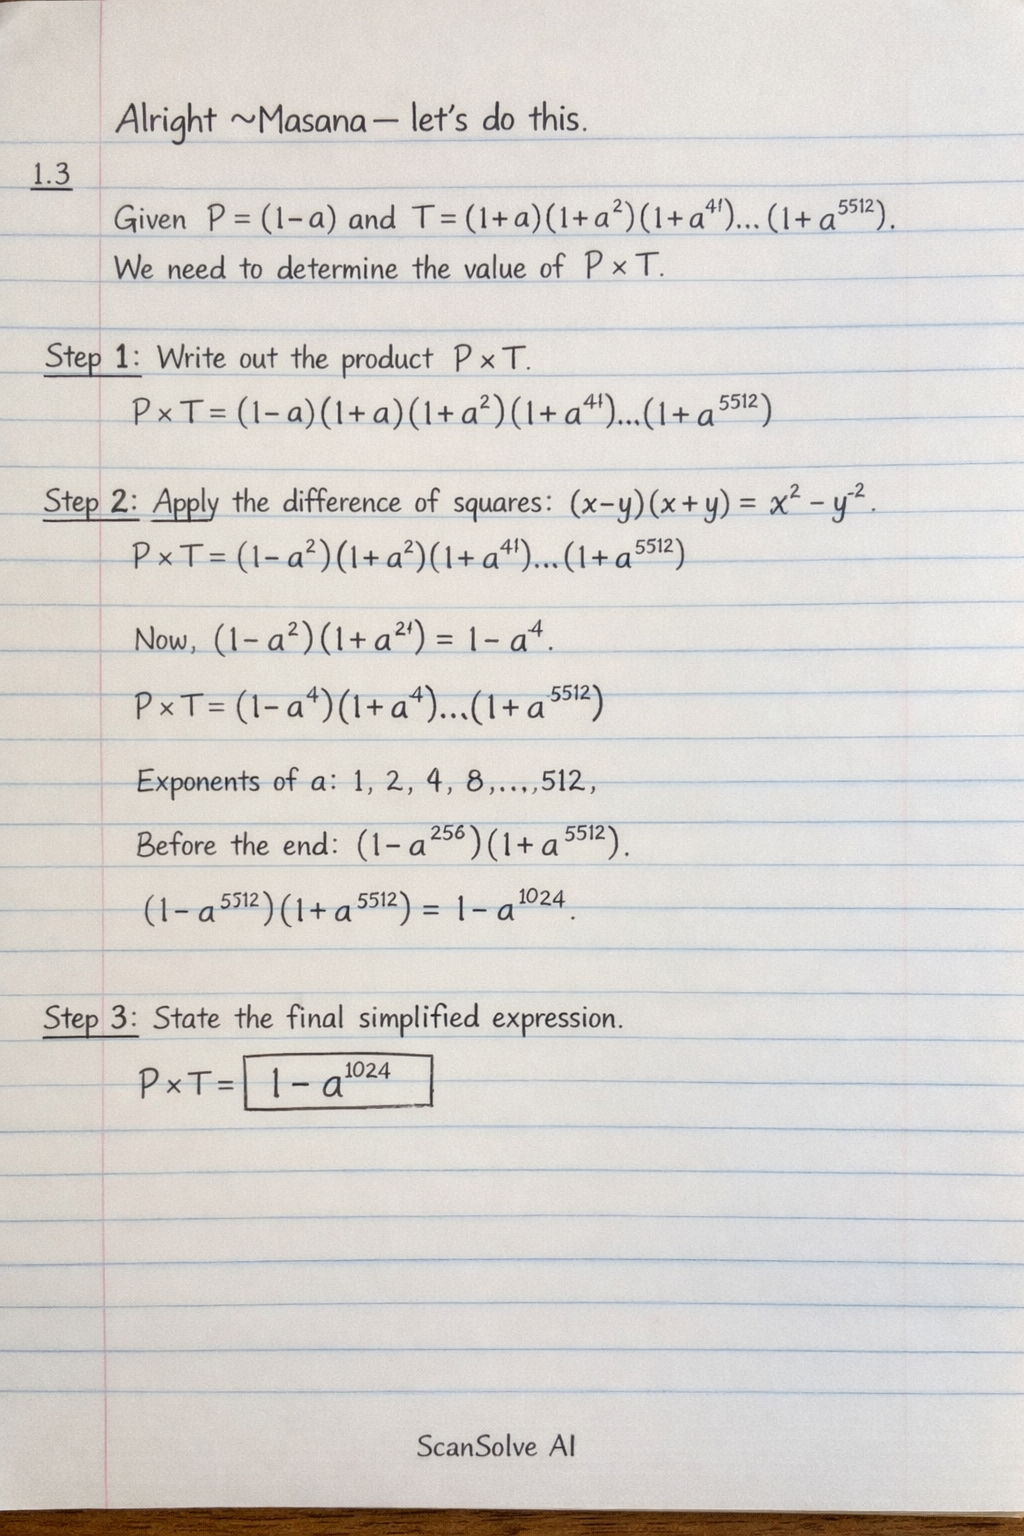 Alright ~Masana — let's do this.
1.3
Given P = (1-a) and T = (1+a)(1+a²)(1+a⁴ᶦ)...(1+a⁵⁵¹²).
We need to determine the value of P × T.
Step 1: Write out the product P × T.
P × T = (1-a)(1+a)(1+a²)(1+a⁴ᶦ)...(1+a⁵⁵¹²)
Step 2: Apply the difference of squares: (x-y)(x+y) = x² - y⁻².
P × T = (1-a²)(1+a²)(1+a⁴ᶦ)...(1+a⁵⁵¹²)
Now, (1-a²)(1+a²ᶦ) = 1-a⁴.
P × T = (1-a⁴)(1+a⁴)...(1+a⁵⁵¹²)
Exponents of a: 1, 2, 4, 8,...,512,
Before the end: (1-a²⁵⁶)(1+a⁵⁵¹²).
(1-a⁵⁵¹²)(1+a⁵⁵¹²) = 1-a¹⁰²⁴.
Step 3: State the final simplified expression.
P × T = 1-a¹⁰²⁴
ScanSolve AI